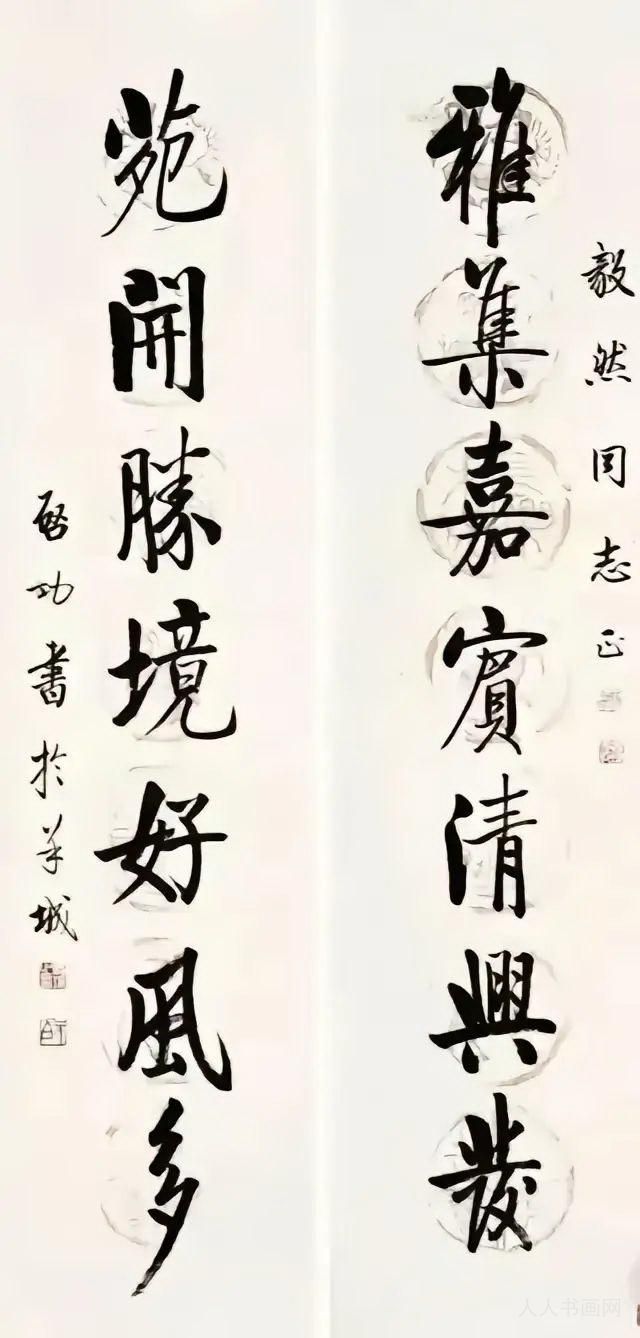 毅然同志正
雅集嘉賓清興發
苑開勝境好風多
啓功书於羊城
人人书画网